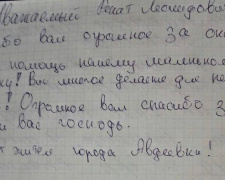 Уважаемый Ринат Леонидович
бо вам огромное за ок
помощь нашему маленьком
ку! Вы многое делаете для не
! Огромное вам спасибо з
и вас господь.
жители города Авдеевки!